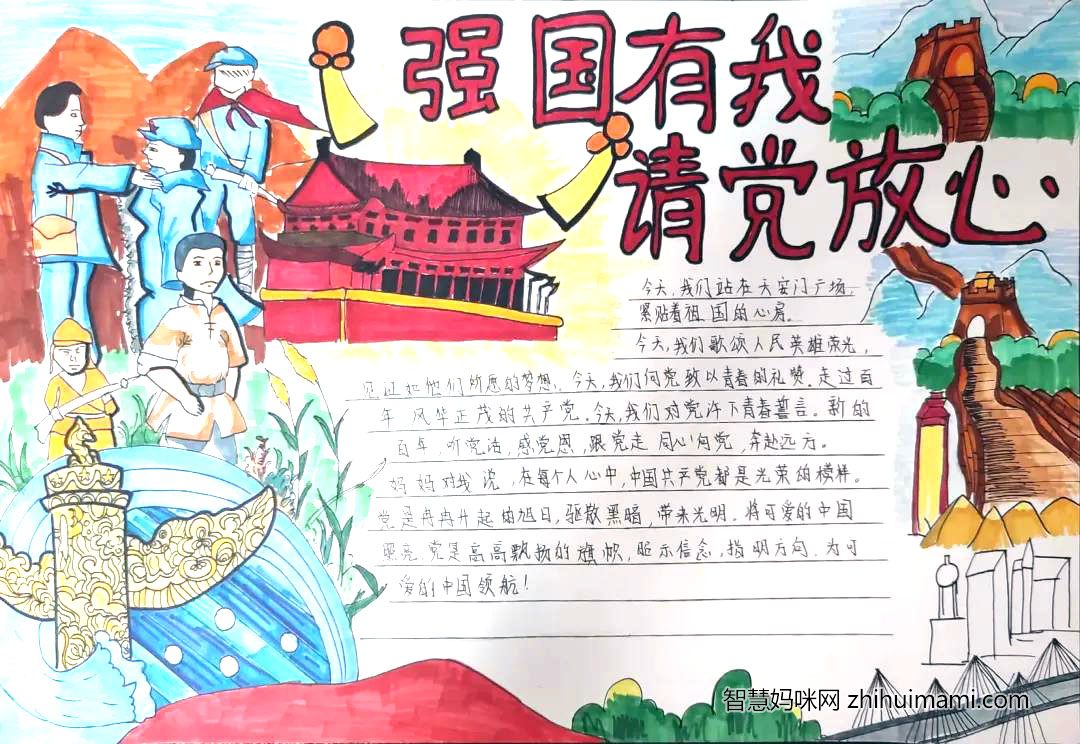 强国有我
请党放心
今天,我们站在天安门广场,
紧贴着祖国的心房。
今天,我们歌颂人民英雄荣光,
见证如他们所愿的梦想,今天,我们向党致以青春的礼赞。走过百
年 风华正茂的共产党。今天,我们对党许下青春誓言。新的
百年,听党话,感党恩,跟党走 同心向党,奔赴远方。
妈妈对我说,在每个人心中,中国共产党都是光荣的榜样。
党是冉冉升起的旭日,驱散黑暗,带来光明。将可爱的中国
照亮,党是高高飘扬的旗帜,昭示信念,指明方向,为可
爱的中国领航!
智慧妈咪网 zhihuimami.com